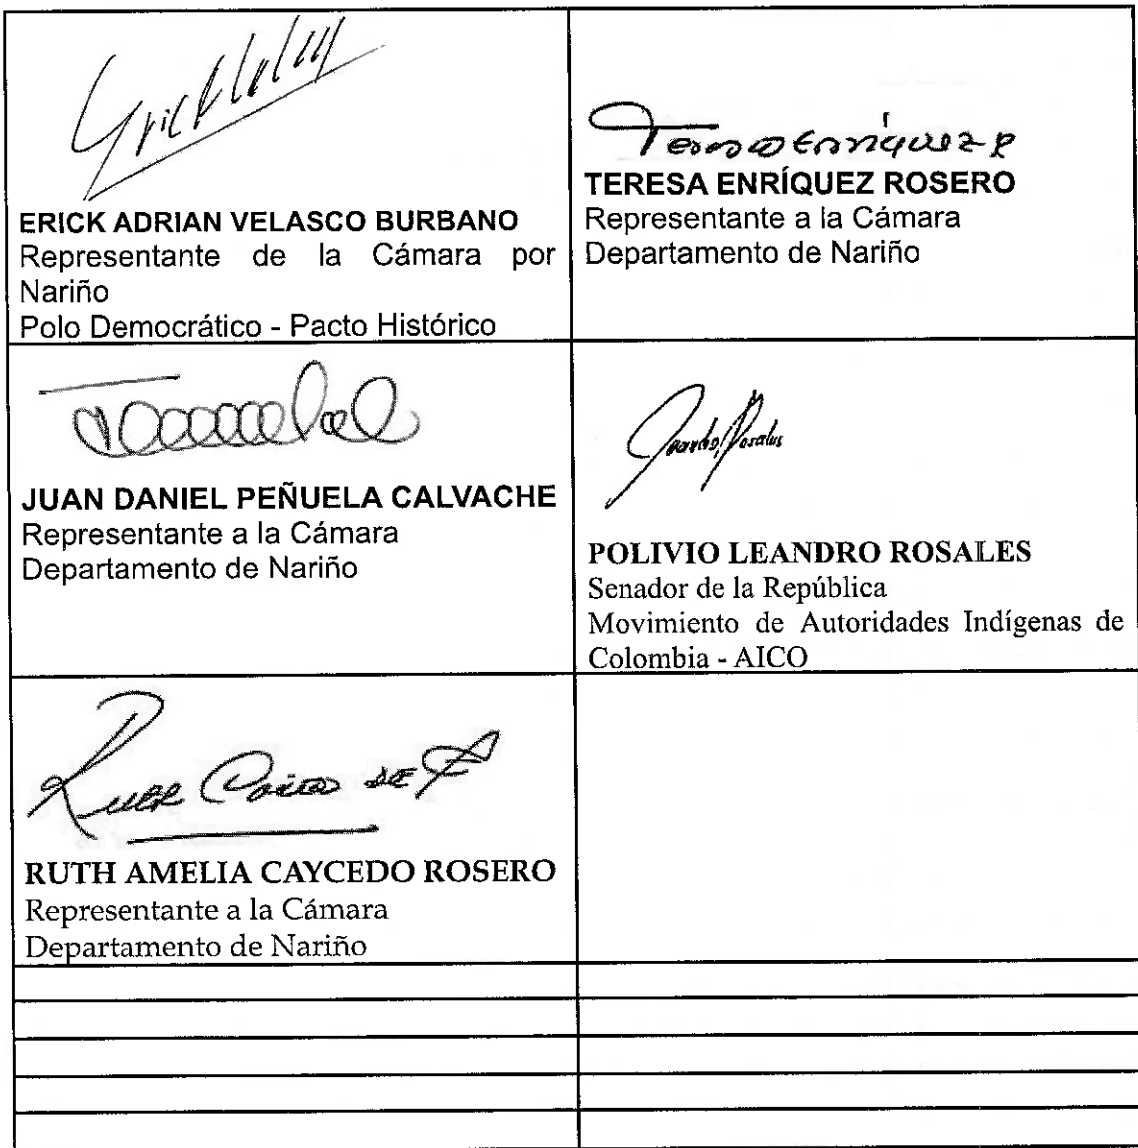 ERICK ADRIAN VELASCO BURBANO
Representante de la Cámara por
Nariño
Polo Democrático - Pacto Histórico
Teresa Enríquez R
TERESA ENRÍQUEZ ROSERO
Representante a la Cámara
Departamento de Nariño
JUAN DANIEL PEÑUELA CALVACHE
Representante a la Cámara
Departamento de Nariño
Leandro Rosales
POLIVIO LEANDRO ROSALES
Senador de la República
Movimiento de Autoridades Indígenas de
Colombia - AICO
RUTH AMELIA CAYCEDO ROSERO
Representante a la Cámara
Departamento de Nariño